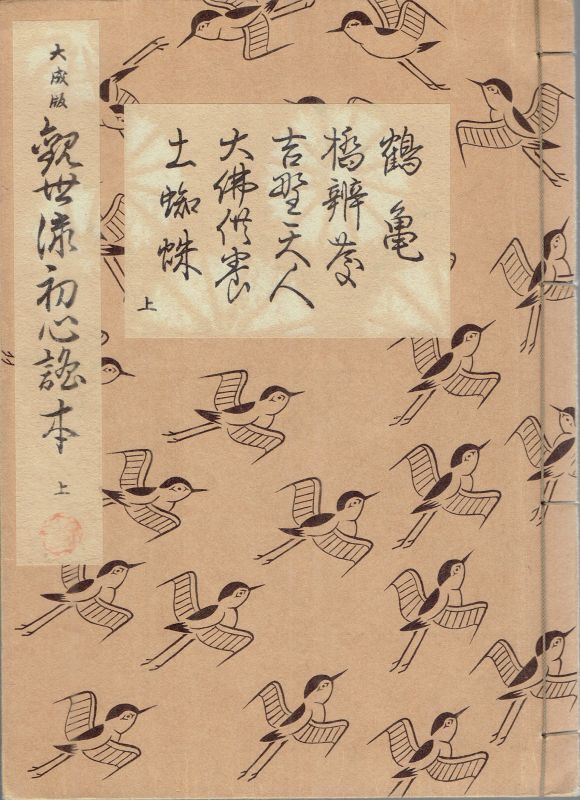 大成版
觀世流初心謡本 上
鶴亀
橋辨慶
吉野天人
大佛供養
土蜘蛛
上